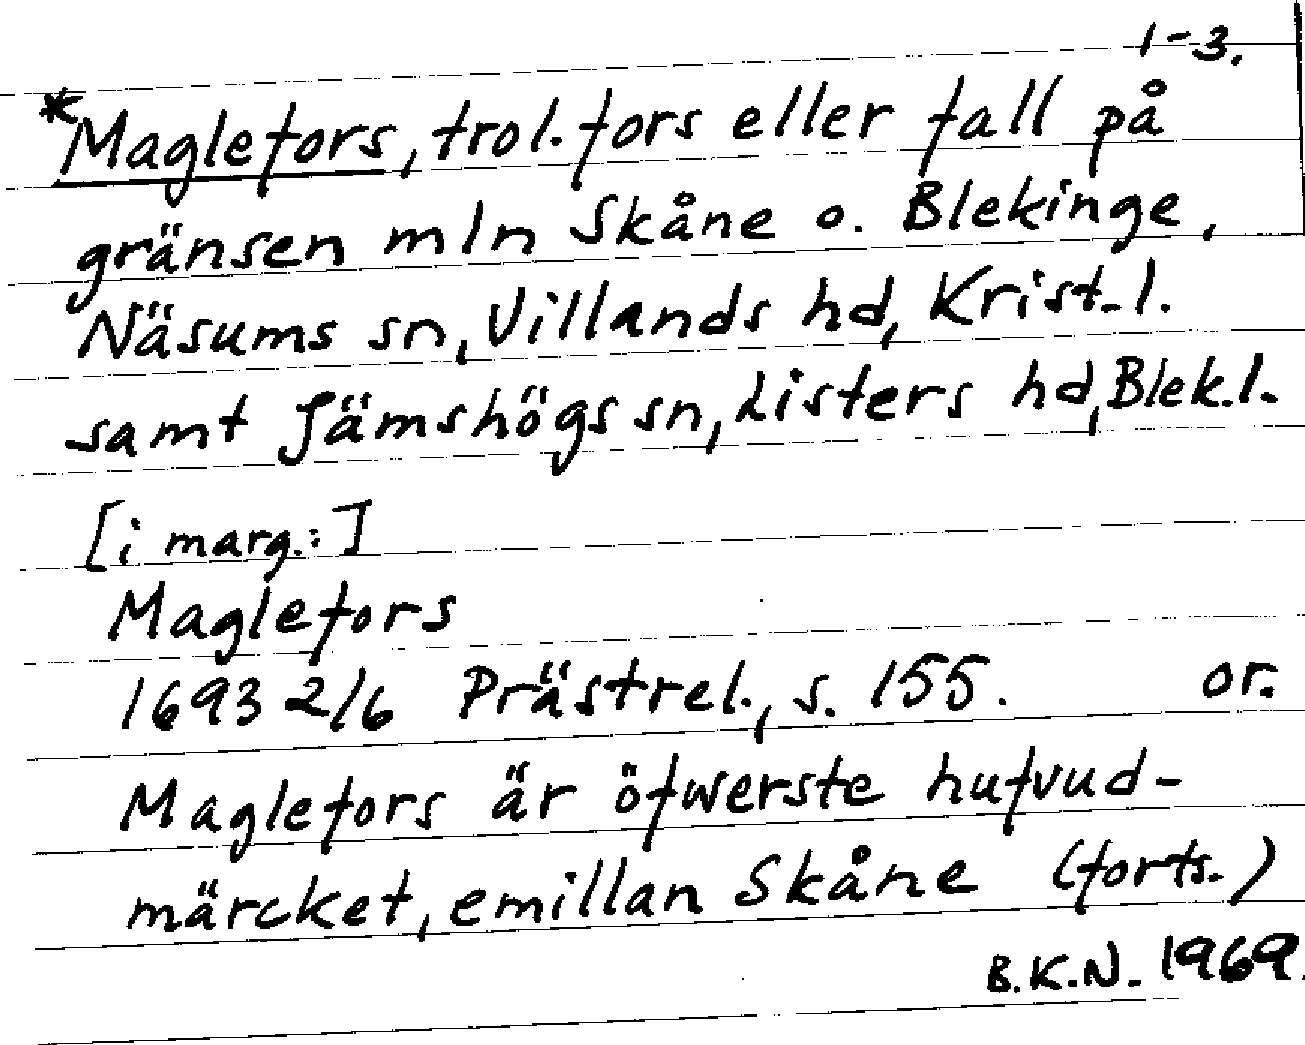 1-3.
*Maglefors, trol. fors eller fall på
gränsen mln Skåne o. Blekinge,
Näsums sn, Villands hd, Krist. l.
samt Jämshögs sn, Listers hd, Blek. l.
[i marg.:]
Maglefors
1693 2/6 Prästrel., s. 155. or.
Maglefors är öfwerste hufvud-
märcket, emillan Skåne (forts.)
B.K.N. 1969.